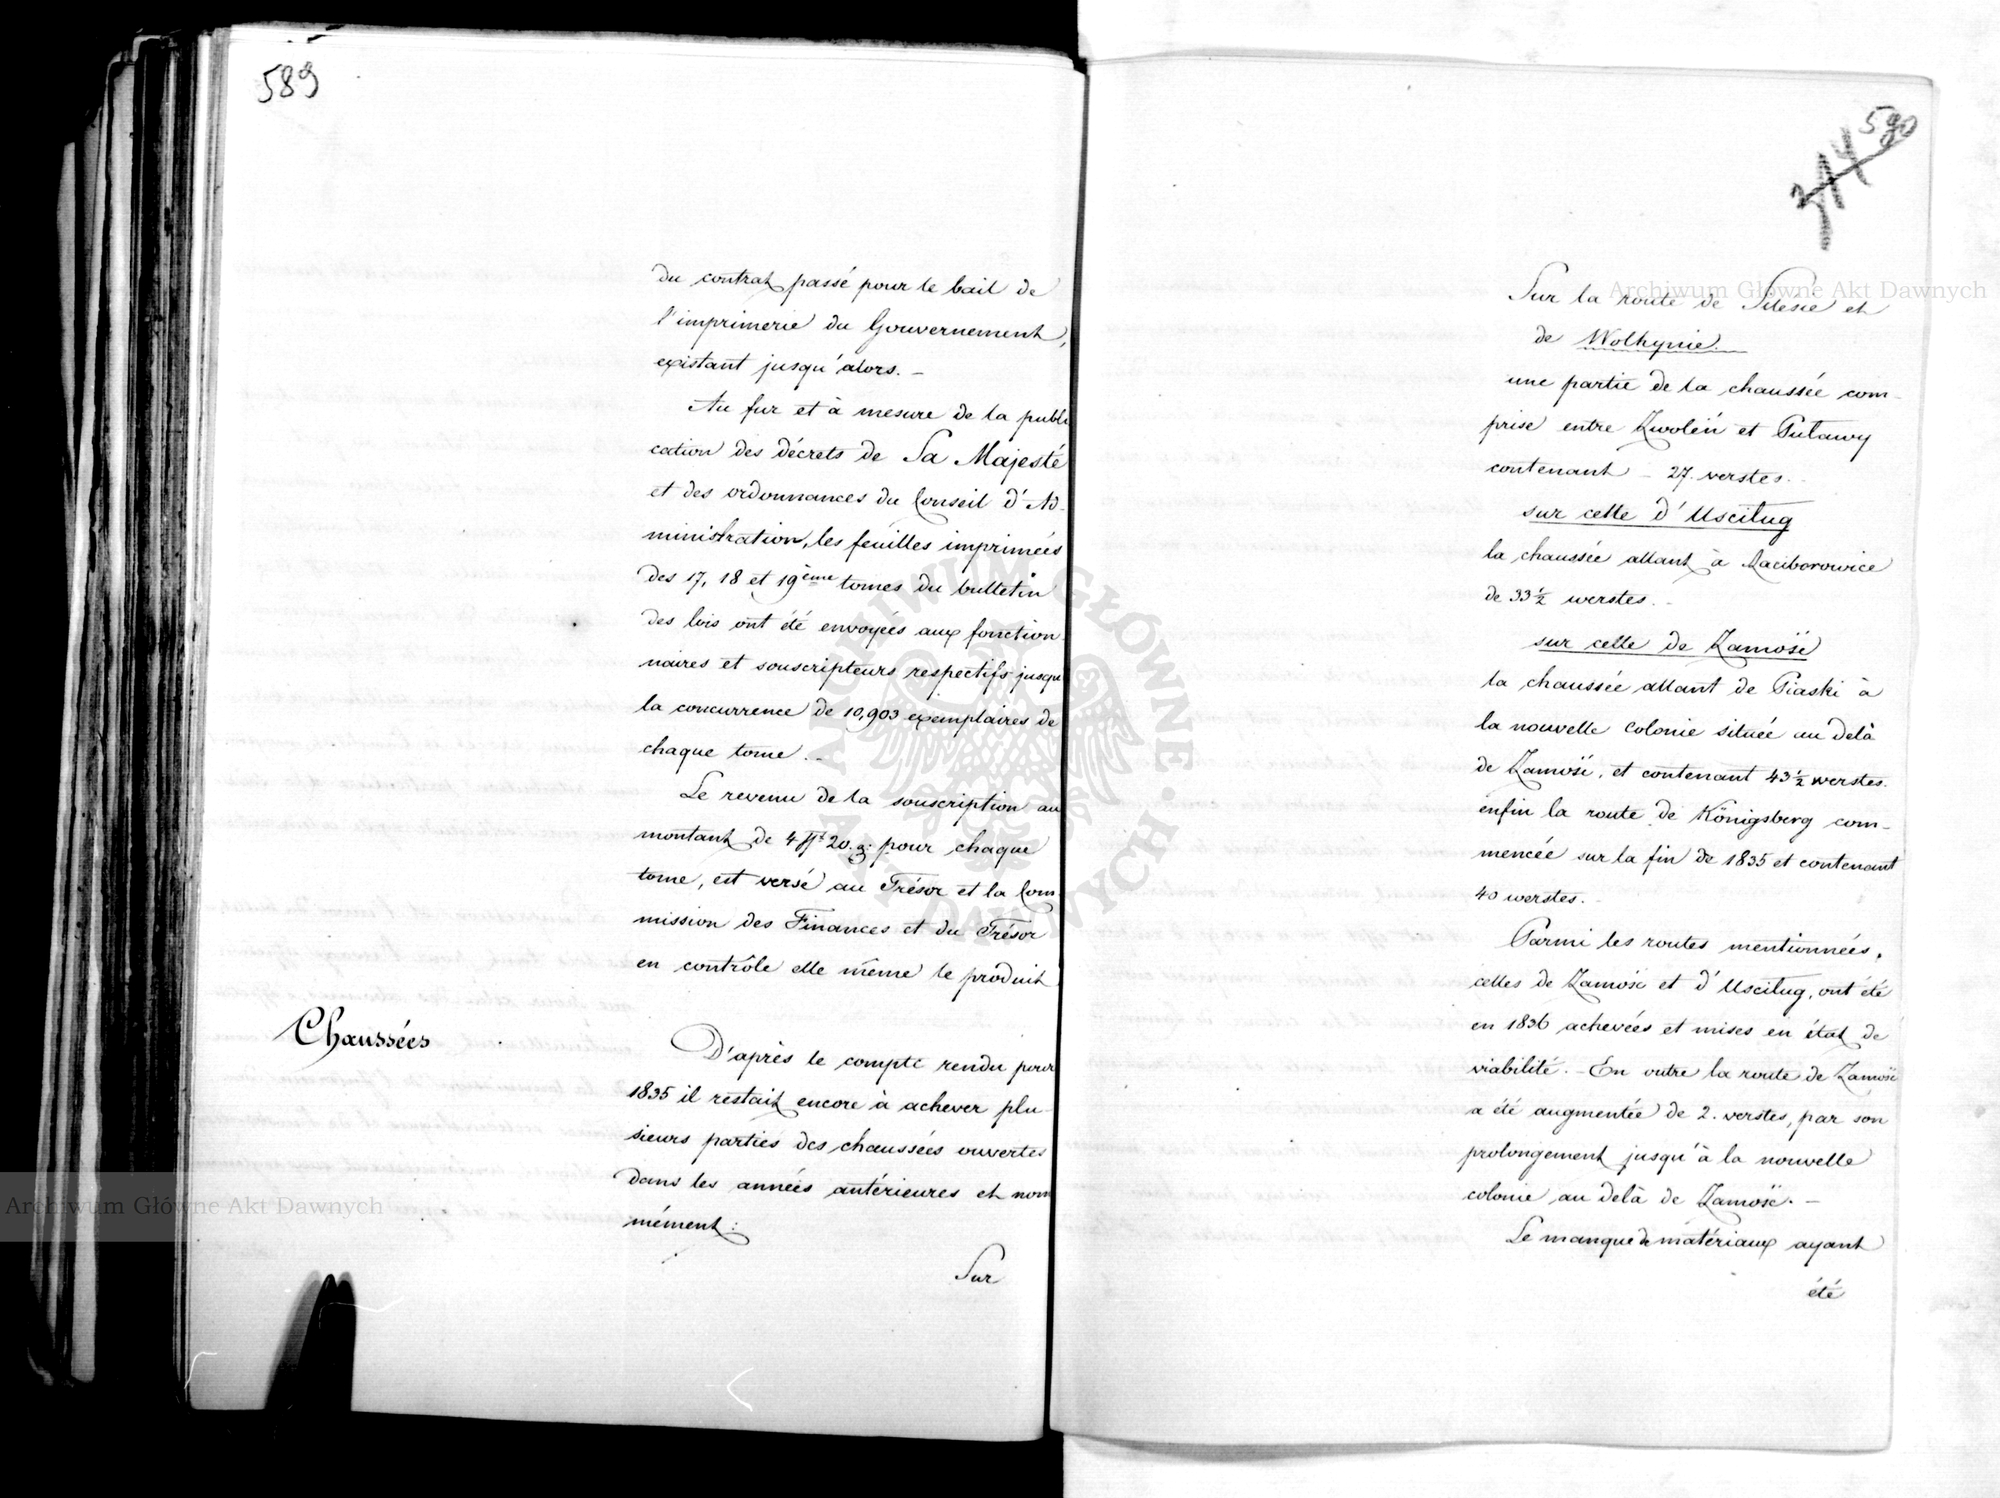 589
du contrat passé pour le bail de
l'imprimerie du Gouvernement,
existant jusqu'alors. –
Au fur et à mesure de la publi
cation des décrets de Sa Majesté
et des ordonnances du Conseil d'Ad-
ministration, les feuilles imprimées
des 17, 18 et 19ème tomes du bulletin
des lois ont été envoyées aux fonction-
naires et souscripteurs respectifs jusqu'
la concurrence de 10,903 exemplaires de
chaque tome. –
Le revenu de la souscription au
montant de 4 20. g: pour chaque
tome, est versé au Trésor et la Com
mission des Finances et du Trésor
en contrôle elle même le produit
Chaussées
D'après le compte rendu pour
1835 il restait encore à achever plu-
sieurs parties des chaussées ouvertes
dans les années antérieures et nom
mément:
Sur
590
Sur la route de Silésie et
de Wolhynie.
une partie de la chaussée com-
prise entre Zwoleń et Puławy
contenant – 27. verstes.
sur celle d'Uscilug
la chaussée allant à Raciborowice
de 33½ werstes. –
sur celle de Zamość
la chaussée allant de Piaski à
la nouvelle colonie située au delà
de Zamość, et contenant 43½ werstes.
enfin la route de Königsberg com-
mencée sur la fin de 1835 et contenant
40 werstes. –
Parmi les routes mentionnées,
celles de Zamość et d'Uscilug, ont été
en 1836 achevées et mises en état de
viabilité. – En outre la route de Zamość
a été augmentée de 2. verstes, par son
prolongement jusqu'à la nouvelle
colonie au delà de Zamość. –
Le manque de matériaux ayant
été
Archiwum Główne Akt Dawnych
Archiwum Główne Akt Dawnych
ARCHIWUM GŁÓWNE · AKT DAWNYCH ·